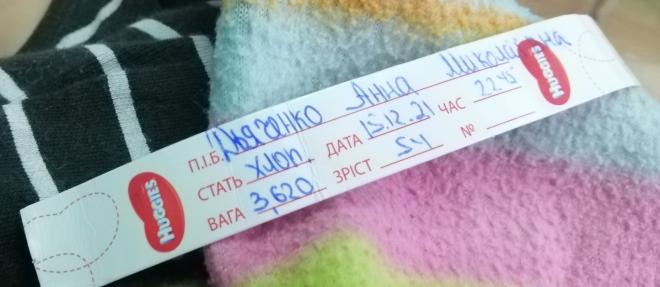 HUGGIES
П.І.Б. Дяченко Анна Миколаївна
СТАТЬ хлоп. ДАТА 15.12.21 ЧАС 22.45
ВАГА 3,620 ЗРІСТ 54 №
HUGGIES